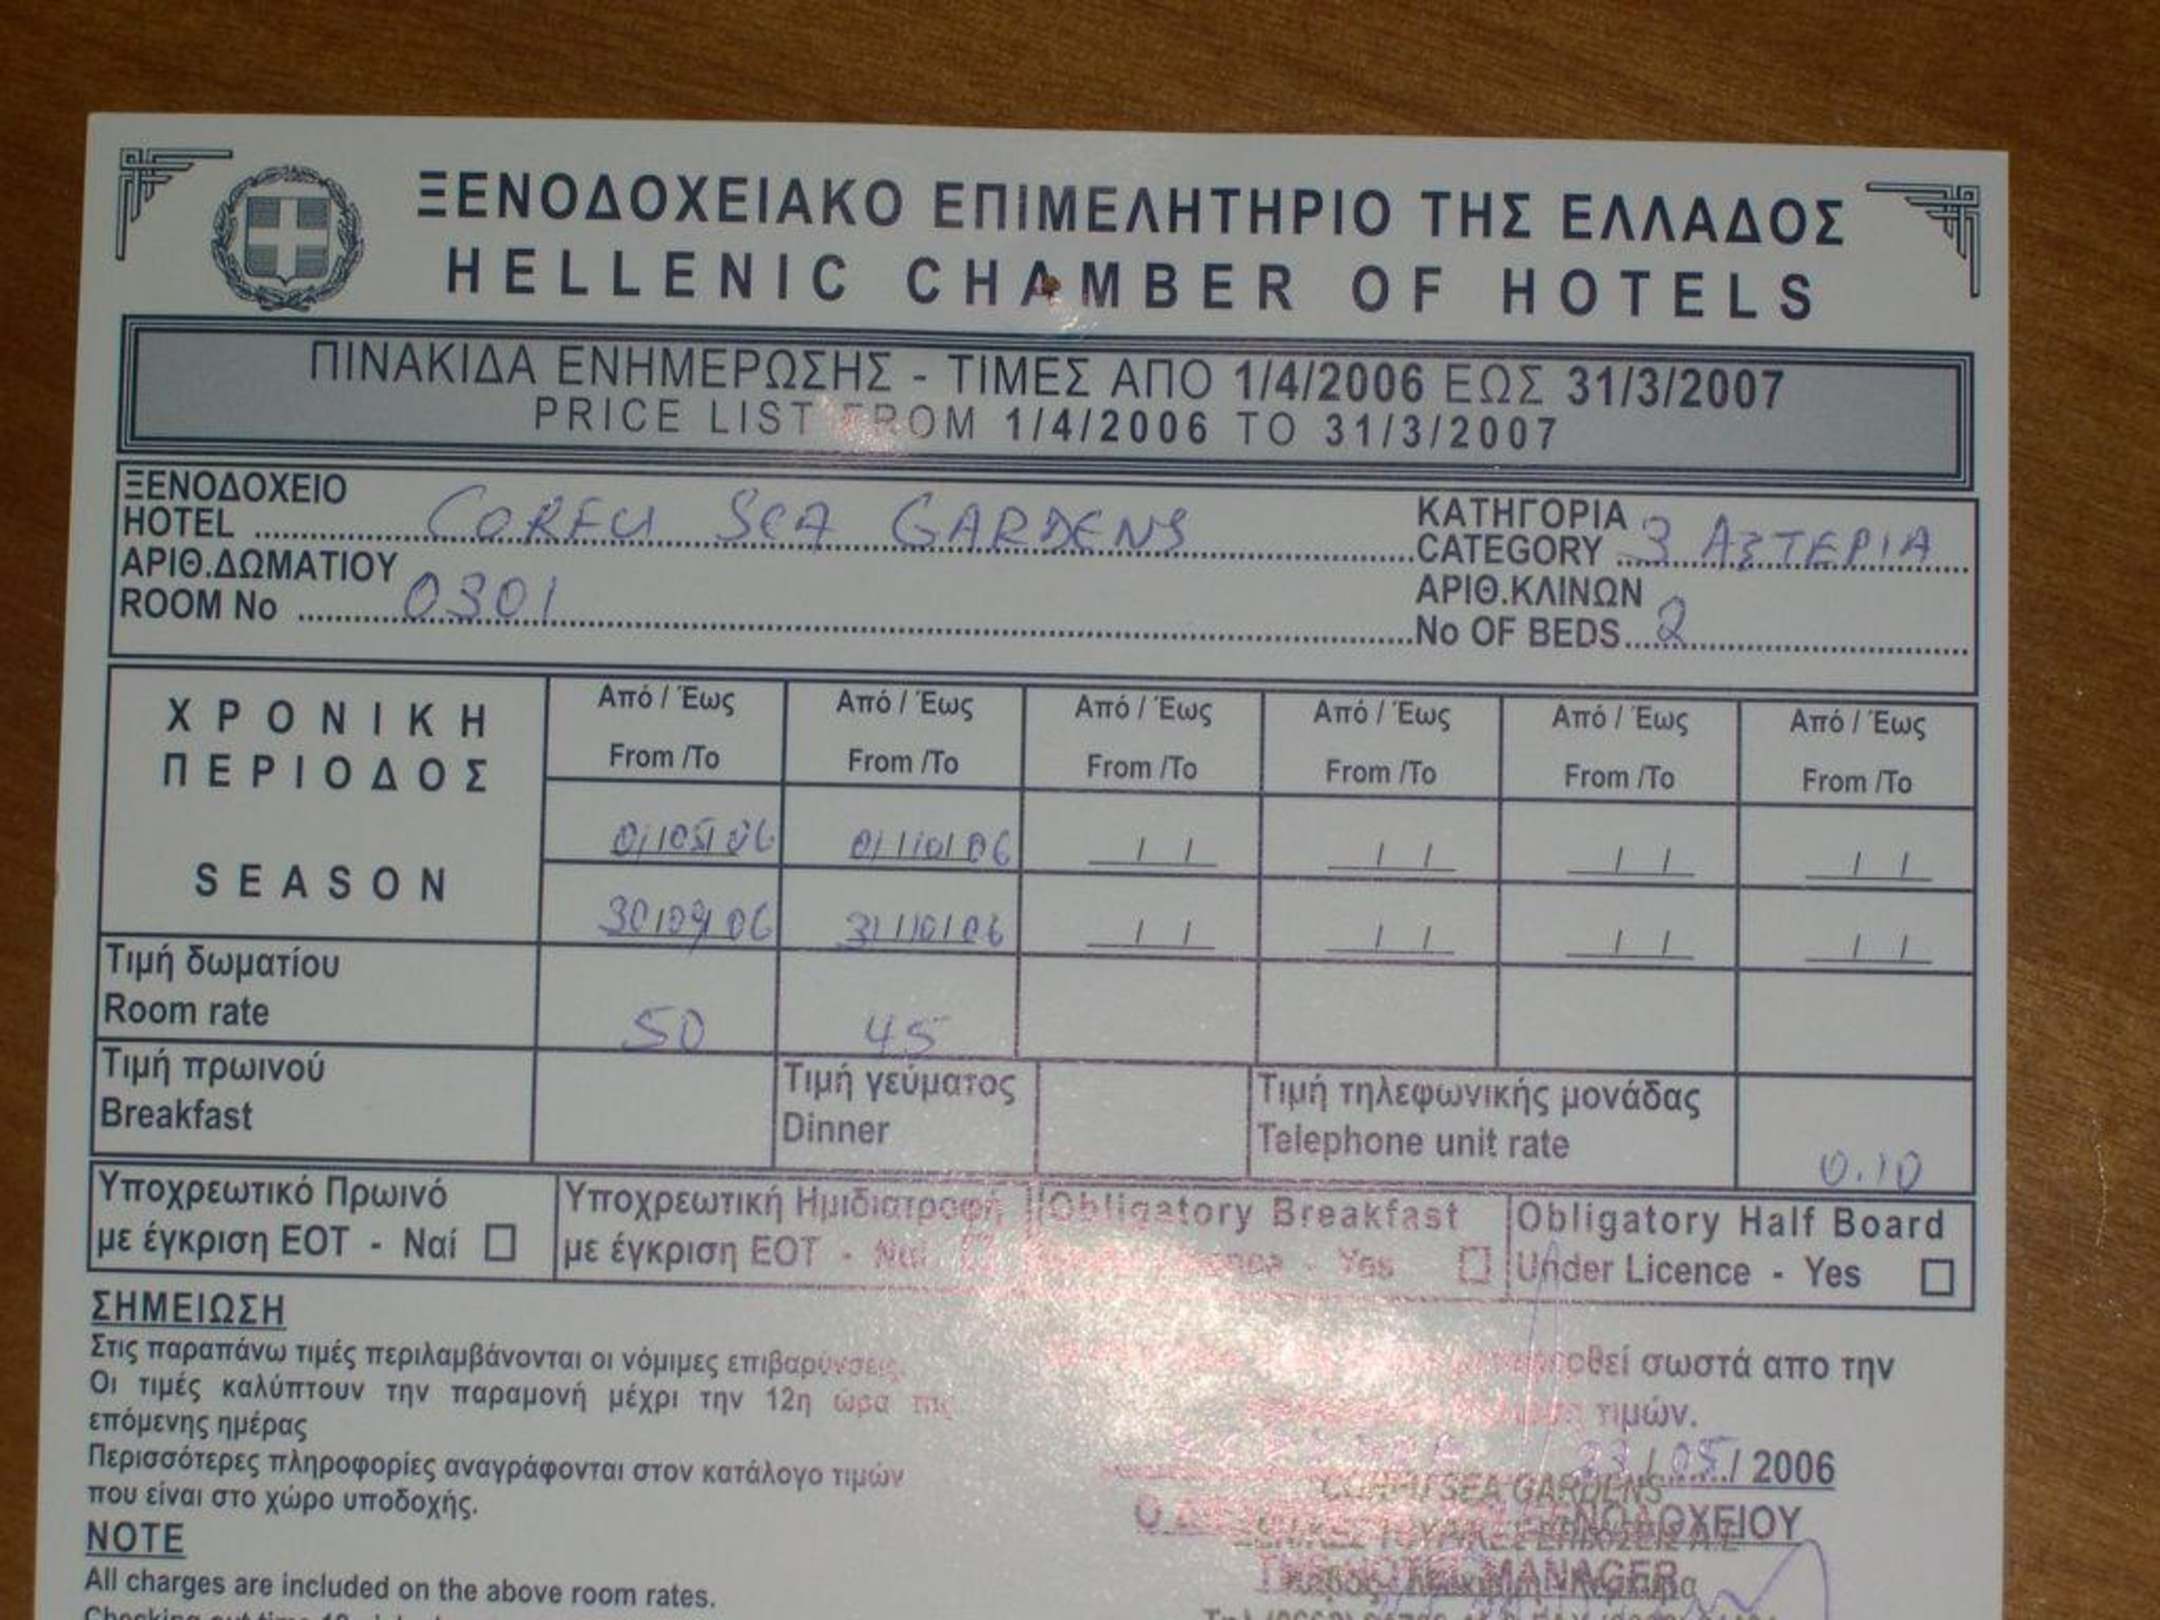 ΞΕΝΟΔΟΧΕΙΑΚΟ ΕΠΙΜΕΛΗΤΗΡΙΟ ΤΗΣ ΕΛΛΑΔΟΣ
HELLENIC CHAMBER OF HOTELS
ΠΙΝΑΚΙΔΑ ΕΝΗΜΕΡΩΣΗΣ - ΤΙΜΕΣ ΑΠΟ 1/4/2006 ΕΩΣ 31/3/2007
PRICE LIST FROM 1/4/2006 TO 31/3/2007
ΞΕΝΟΔΟΧΕΙΟ
HOTEL CORFU SEA GARDENS
ΚΑΤΗΓΟΡΙΑ
CATEGORY 3 ΑΣΤΕΡΙΑ
ΑΡΙΘ.ΔΩΜΑΤΙΟΥ
ROOM No 0301
ΑΡΙΘ.ΚΛΙΝΩΝ
No OF BEDS 2
ΧΡΟΝΙΚΗ
ΠΕΡΙΟΔΟΣ
SEASON
Από / Έως Από / Έως Από / Έως Από / Έως Από / Έως Από / Έως
From /To From /To From /To From /To From /To From /To
01/05/06 01/10/06 / / / / / / / /
30/09/06 31/10/06 / / / / / / / /
Τιμή δωματίου
Room rate 50 45
Τιμή πρωινού
Breakfast
Τιμή γεύματος
Dinner
Τιμή τηλεφωνικής μονάδας
Telephone unit rate 0.10
Υποχρεωτικό Πρωινό
με έγκριση ΕΟΤ - Ναί
Υποχρεωτική Ημιδιατροφή
με έγκριση ΕΟΤ - Ναί
Obligatory Breakfast
- Yes
Obligatory Half Board
Under Licence - Yes
ΣΗΜΕΙΩΣΗ
Στις παραπάνω τιμές περιλαμβάνονται οι νόμιμες επιβαρύνσεις.
Οι τιμές καλύπτουν την παραμονή μέχρι την 12η ώρα της
επόμενης ημέρας
Περισσότερες πληροφορίες αναγράφονται στον κατάλογο τιμών
που είναι στο χώρο υποδοχής.
NOTE
All charges are included on the above room rates.
σωστά απο την
τιμών.
23/05/2006
CORFU SEA GARDENS
THE HOTEL MANAGER